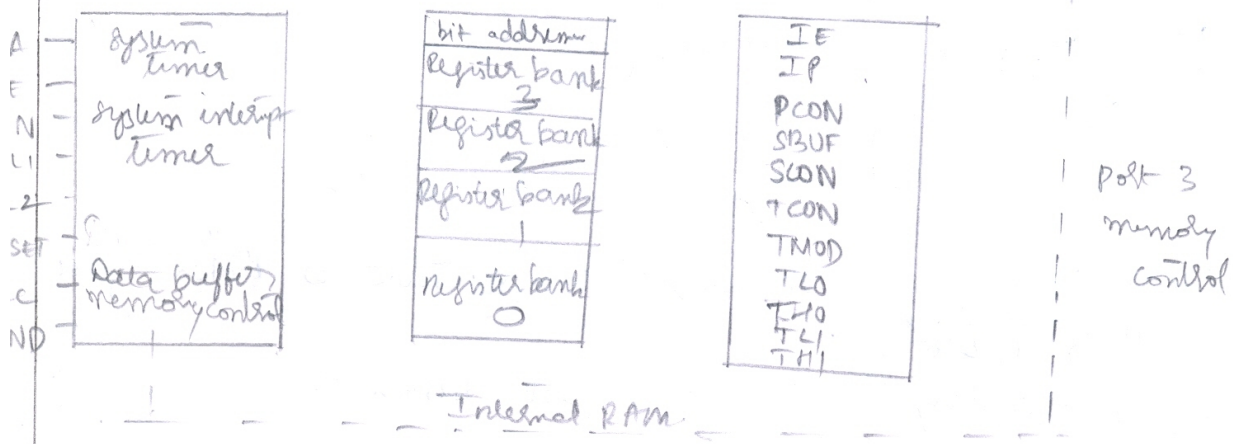 A
E
N
L1
2
SET
C
ND
system
timer
system interrup
timer
Data buffer
memory control
bit address
Register bank
3
Register bank
2
Register bank
1
register bank
0
IE
IP
PCON
SBUF
SCON
TCON
TMOD
TL0
TH0
TL1
TH1
Port 3
memory
control
Internal RAM